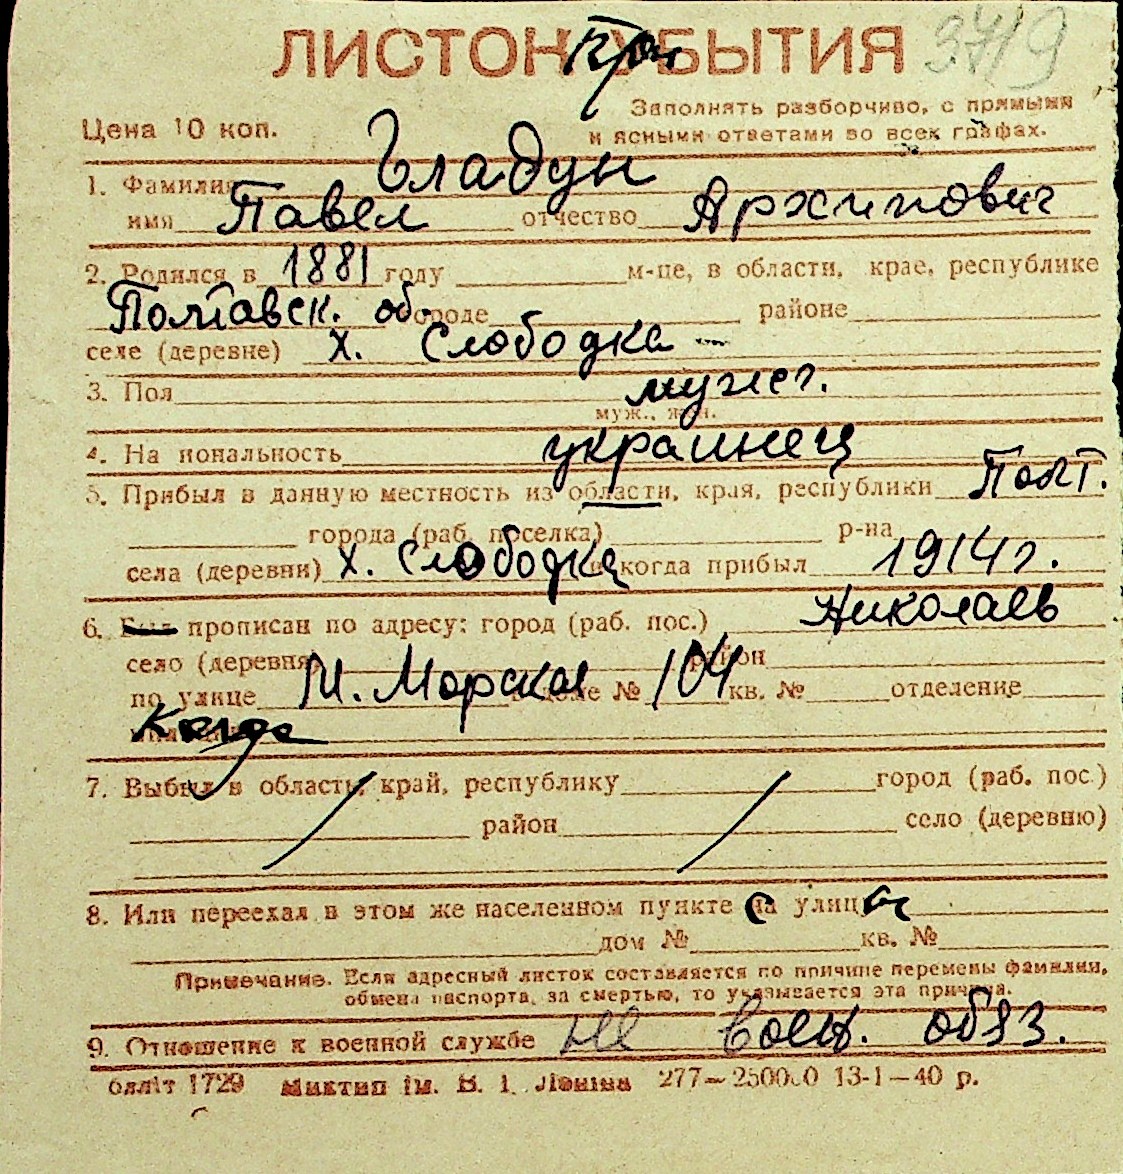 ЛИСТОК УБЫТИЯ
при
3719
Заполнять разборчиво, с прямыми
Цена 10 коп.
и ясными ответами во всех графах.
1. Фамилия Гладун
имя Павел отчество Архипович
2. Родился в 1881 году м-це, в области, крае, республике
Полтавск. об. городе районе
селе (деревне) х. Слободка
3. Пол мужск.
муж., жен.
4. Национальность украинец
5. Прибыл в данную местность из области, края, республики Полт.
города (раб. поселка) р-на
села (деревни) х. Слободка и когда прибыл 1914 г.
6. Был прописан по адресу: город (раб. пос.) Николаев
село (деревня) район
по улице М. Морская в доме № 104 кв. № отделение
милиции
7. Выбыл в область, край, республику город (раб. пос.)
район село (деревню)
8. Или переехал в этом же населенном пункте с улицы
дом № кв. №
Примечание. Если адресный листок составляется по причине перемены фамилии,
обмена паспорта, за смертью, то указывается эта причина.
9. Отношение к военной службе не воен. обяз.
облліт 1729 Миктип ім. В. І. Леніна 277—250000 13-1—40 р.